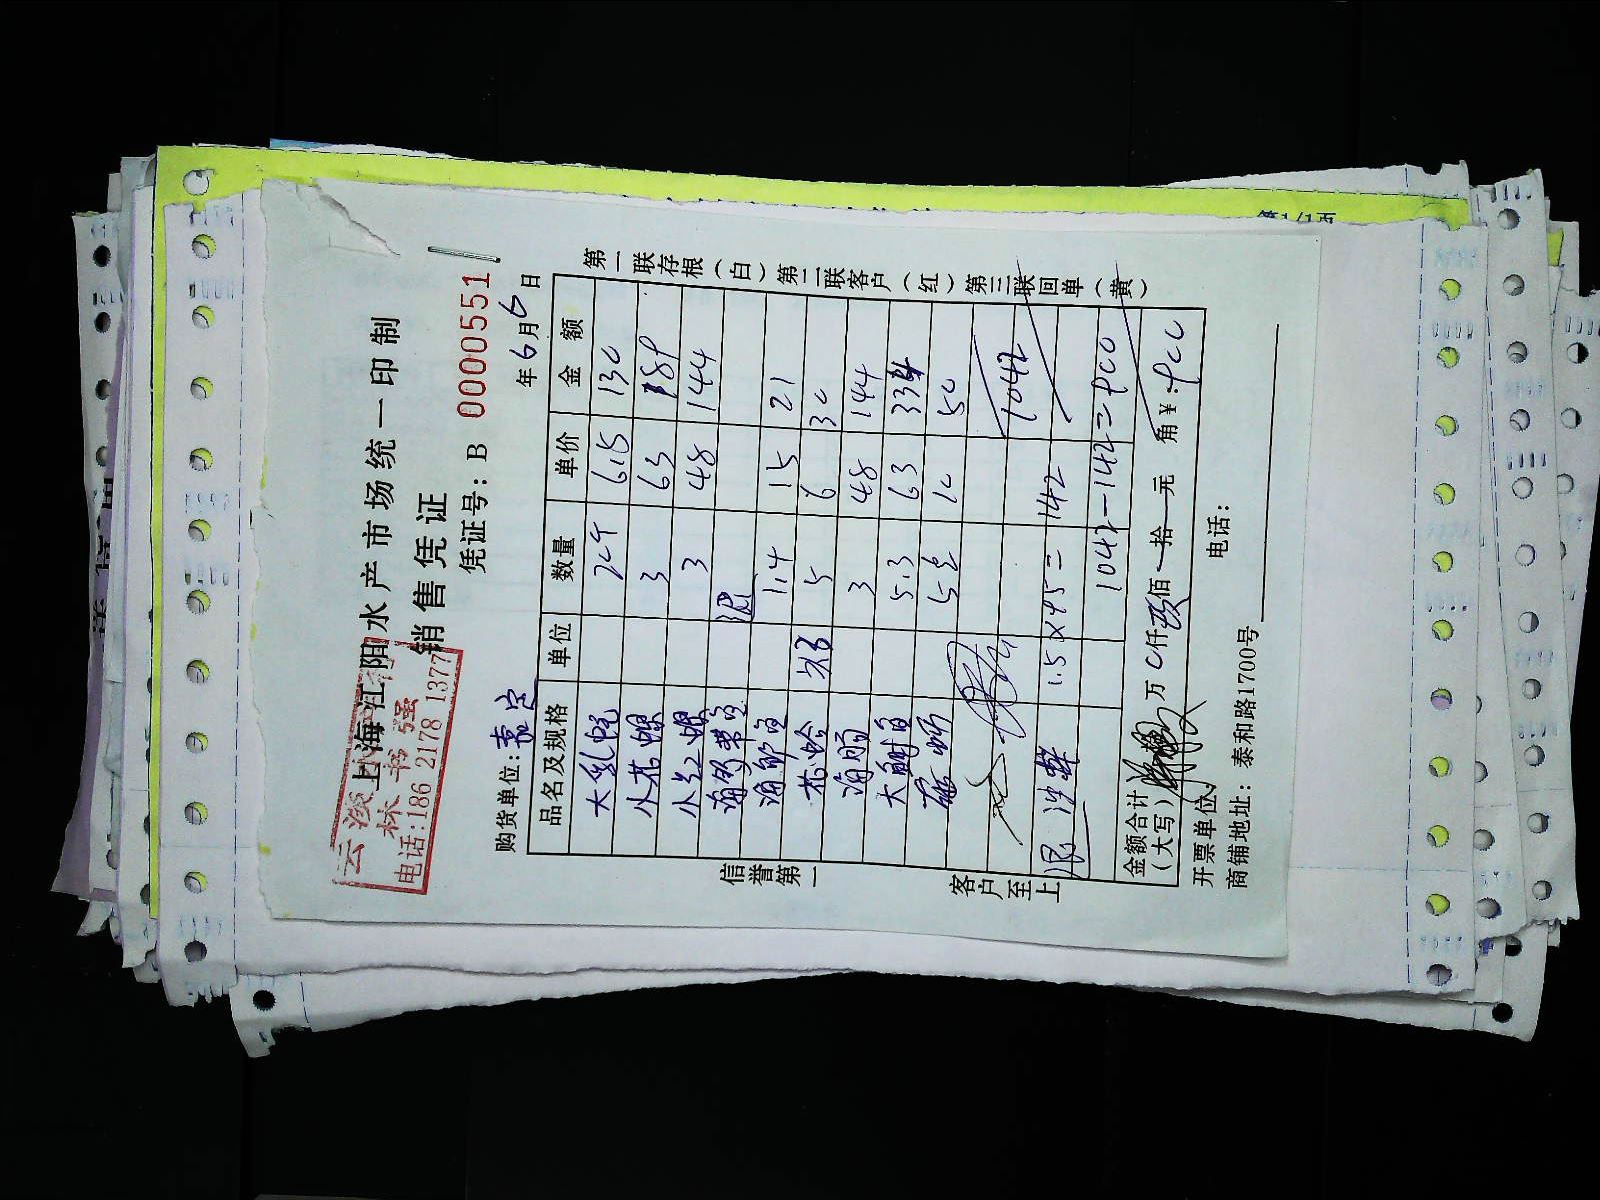 上海江阳水产市场统一印制
销售凭证
云淡
林书强
电话:186 2178 1377
凭证号: B 0000551
购货单位: 嘉定
年 6 月 6 日
品名及规格 单位 数量 单价 金额
大乳 20个 6.5 130
小花螺 3 63 189
小红螺 3 48 144
海 退
海 1.4 15 21
花蛤 5 6 30
海肠 3 48 144
大 5.3 63 334
5 10 50
1042
退 沙 1.5×95=142
1042-142=900
金额合计(大写) 万 0 仟 玖 佰 拾 元 角 ¥: 900
开票单位: 电话:
商铺地址: 泰和路1700号
信誉第一
客户至上
第一联存根(白)第二联客户(红)第三联回单(黄)
第1/1页